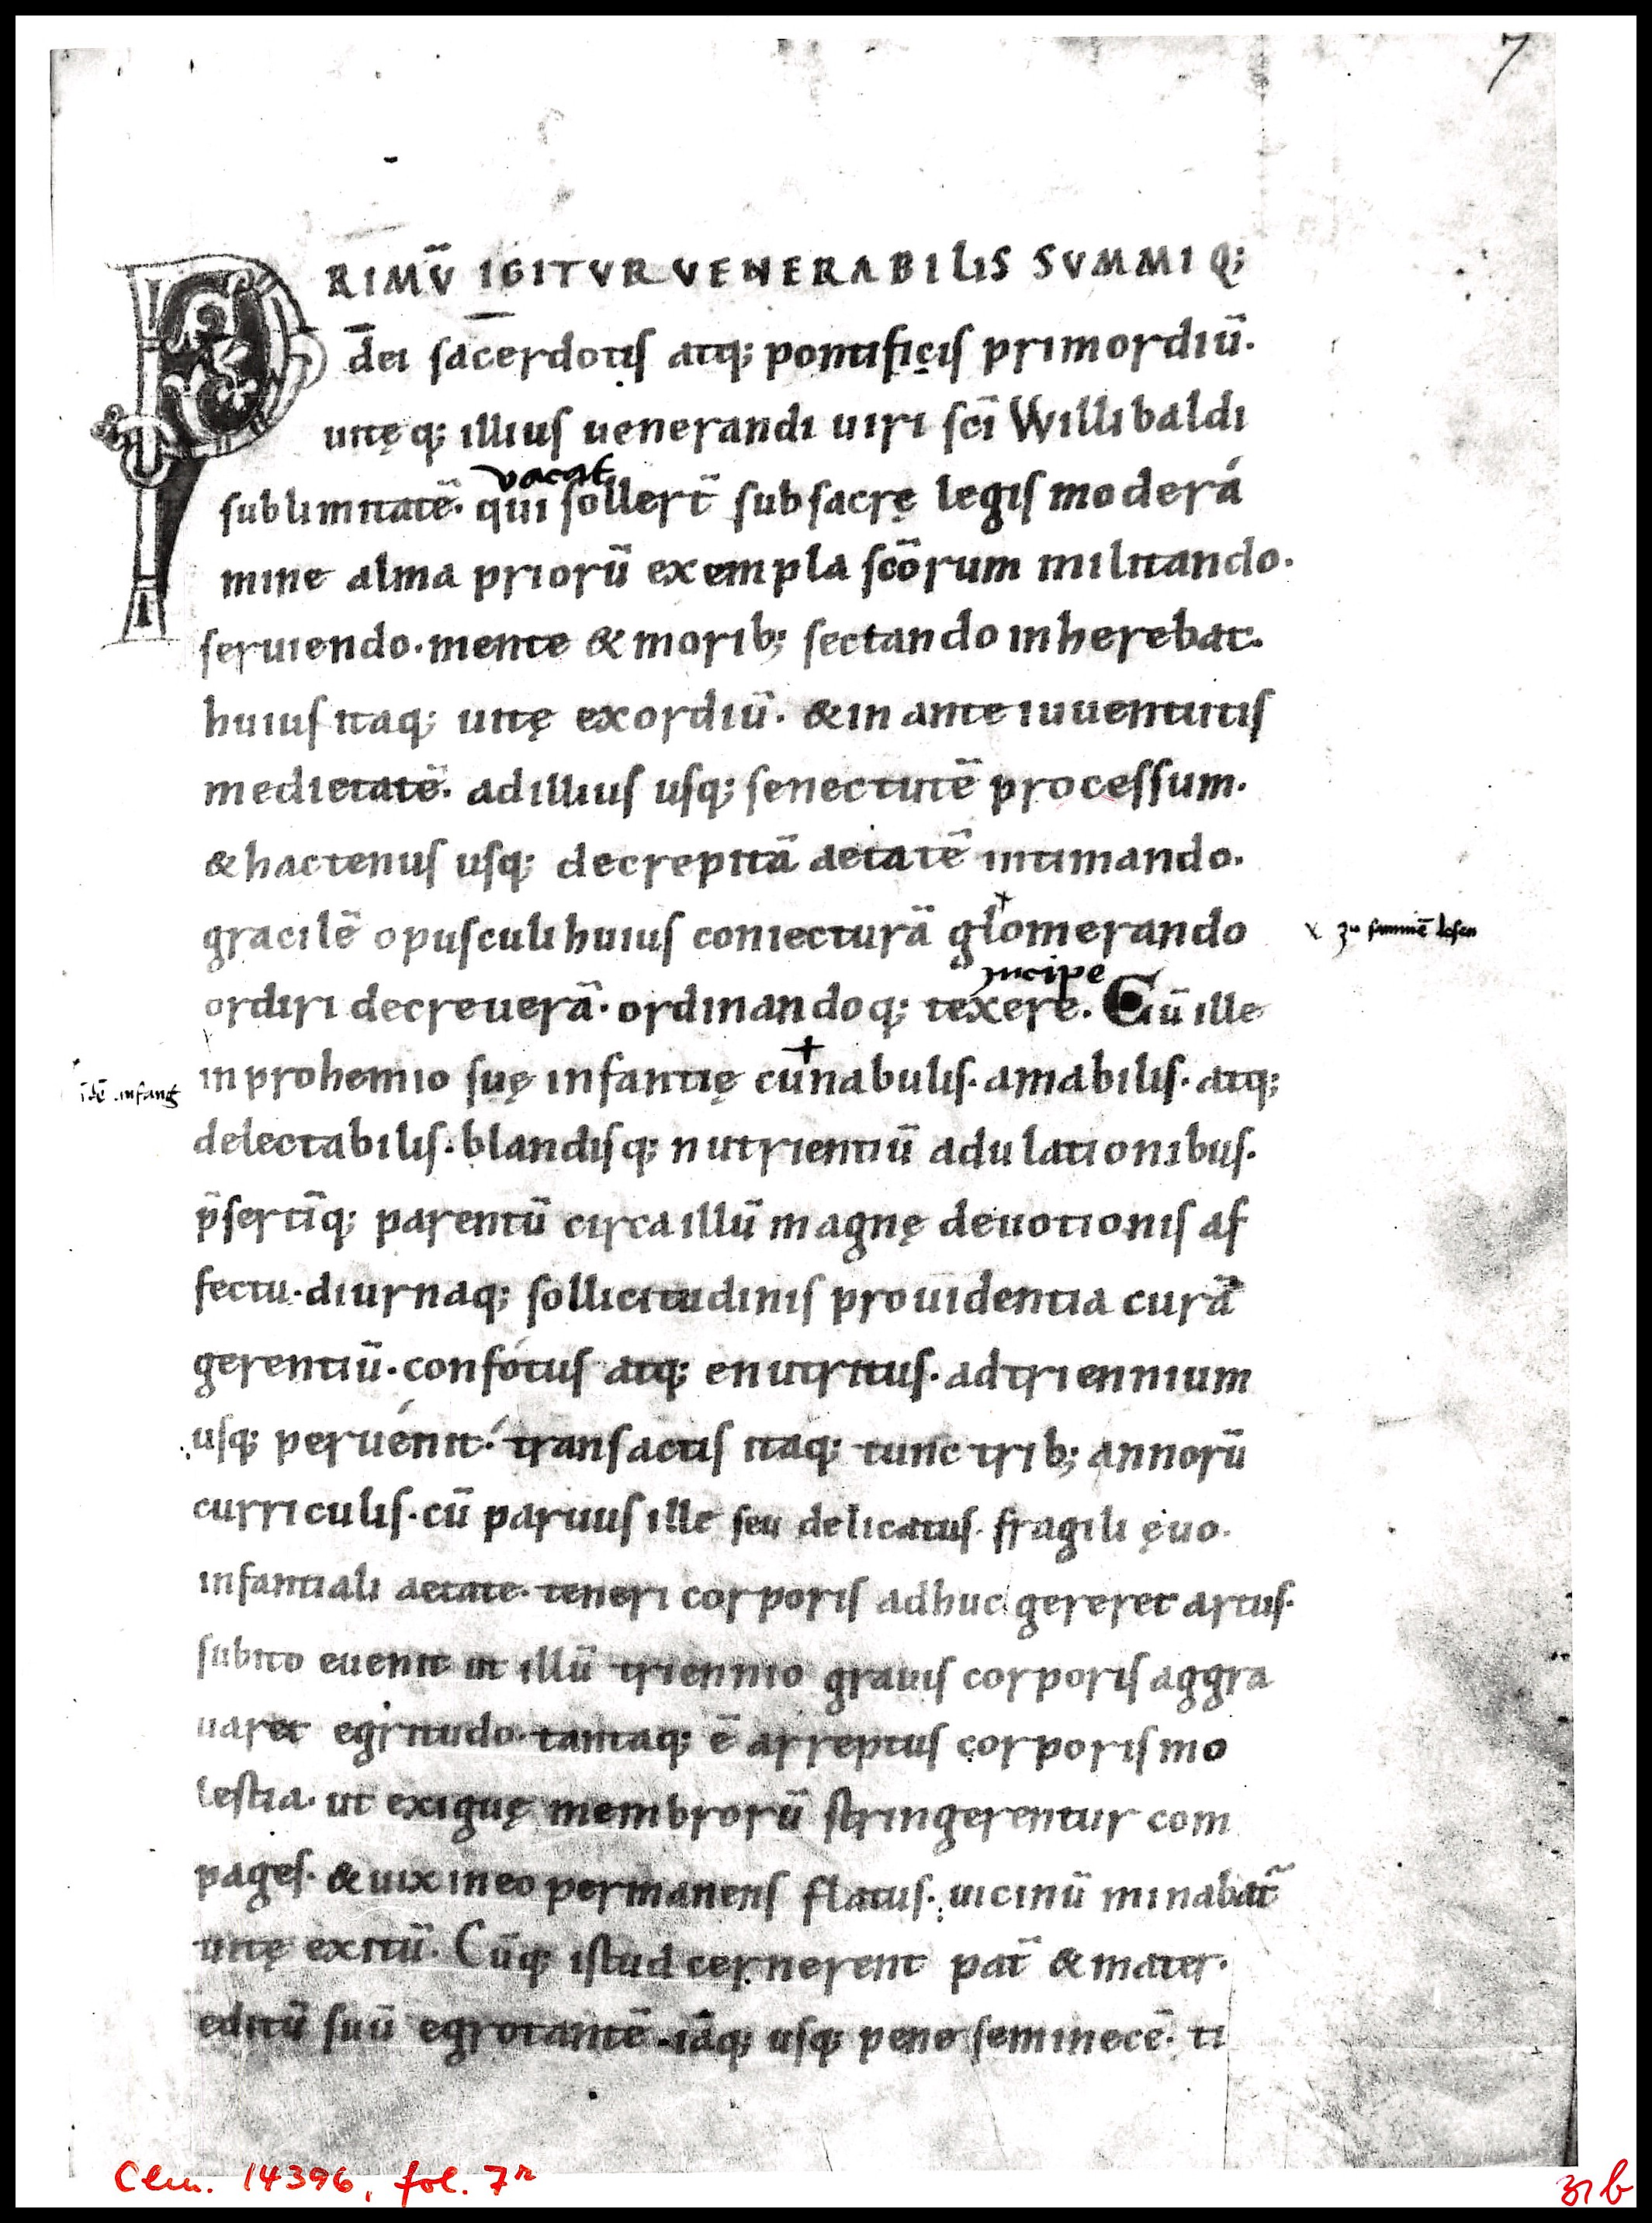 7
PRIMŪ IGITVR VENERABILIS SVMMIQ;
dei sacerdotis atq; pontificis primordiū.
uitęq; illius uenerandi uiri sc̄i Willibaldi
vacat
sublimitatē. qui sollert̄ sub sacrę legis moderá
mine alma priorū exempla sc̄orum militando.
seruiendo. mente & morib; sectando inherebat.
huius itaq; uitę exordiū. & in ante iuuentutis
medietatē. ad illius usq; senectutē processum.
& hactenus usq; decrepitā aetatē intimando.
gracilē opusculi huius coniecturā glomerando
x zu
incipe
ordiri decreuerā. ordinandoq; texere. Cū ille
in prohemio suę infantię cunabulis. amabilis. atq;
delectabilis. blandisq; nutrientiū adulationibus.
p̄sertīq; parentū circa illū magnę deuotionis af
fectu. diurnaq; sollicitudinis prouidentia curā
gerentiū. confótus atq; enutritus. ad triennium
usq; peruénit. transactis itaq; tunc trib; annorū
curriculis. cū paruus ille seu delicatus. fragili ęuo.
infantiali aetate. teneri corporis adhuc gereret artus.
subito euenit ut illū triennio grauis corporis aggra
uaret egritudo. tantaq; ē arreptus corporis mo
lestia. ut exiguę membrorū stringerentur com
pages. & uix in eo permanens flatus. uicinū minabat̄
uitę exitū. Cūq; istud cernerent pat̄ & mater.
editū suū egrotantē. iāq; usq; pene seminecē. ti
Clm. 14396, fol. 7r
31b